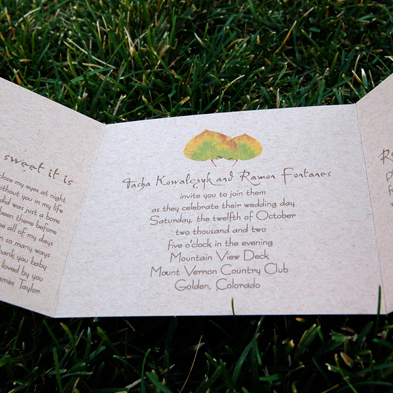 sweet it is
close my eyes at night
without you in my life
was just a bore
been there before
all of my days
so many ways
thank you baby
loved by you
Taylor
Tasha Kowalczyk and Ramon Fontanes
invite you to join them
as they celebrate their wedding day
Saturday, the twelfth of October
two thousand and two
five o'clock in the evening
Mountain View Deck
Mount Vernon Country Club
Golden, Colorado